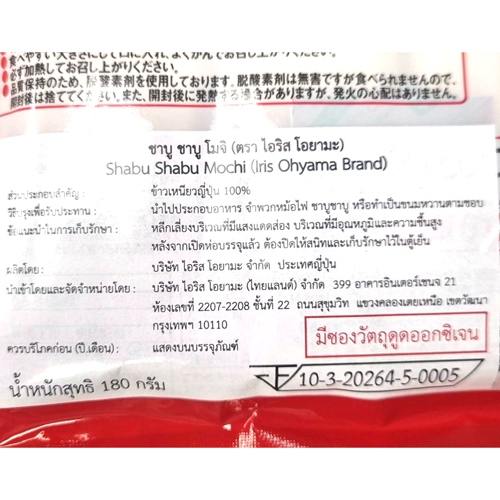 食べやすい大きさにして口に入れ、よくかんでお召し上がりください。
必ず加熱してお召し上がりください。
品質保持のため、脱酸素剤を使用しております。脱酸素剤は無害ですが食べられませんので、
開封後は捨ててください。また、開封後に発熱する場合がありますが、発火の心配はありません。
ชาบู ชาบู โมจิ (ตรา ไอริส โอยามะ)
Shabu Shabu Mochi (Iris Ohyama Brand)
ส่วนประกอบสำคัญ : ข้าวเหนียวญี่ปุ่น 100%
วิธีปรุงเพื่อรับประทาน : นำไปประกอบอาหาร จำพวกหม้อไฟ ชาบูชาบู หรือทำเป็นขนมหวานตามชอบ
ข้อแนะนำในการเก็บรักษา : หลีกเลี่ยงบริเวณที่มีแสงแดดส่อง บริเวณที่มีอุณหภูมิและความชื้นสูง
หลังจากเปิดห่อบรรจุแล้ว ต้องปิดให้สนิทและเก็บรักษาไว้ในตู้เย็น
ผลิตโดย : บริษัท ไอริส โอยามะ จำกัด ประเทศญี่ปุ่น
นำเข้าโดยและจัดจำหน่ายโดย : บริษัท ไอริส โอยามะ (ไทยแลนด์) จำกัด 399 อาคารอินเตอร์เชนจ 21
ห้องเลขที่ 2207-2208 ชั้นที่ 22 ถนนสุขุมวิท แขวงคลองเตยเหนือ เขตวัฒนา
กรุงเทพฯ 10110
ควรบริโภคก่อน (ปี.เดือน) : แสดงบนบรรจุภัณฑ์
มีซองวัตถุดูดออกซิเจน
น้ำหนักสุทธิ 180 กรัม
10-3-20264-5-0005